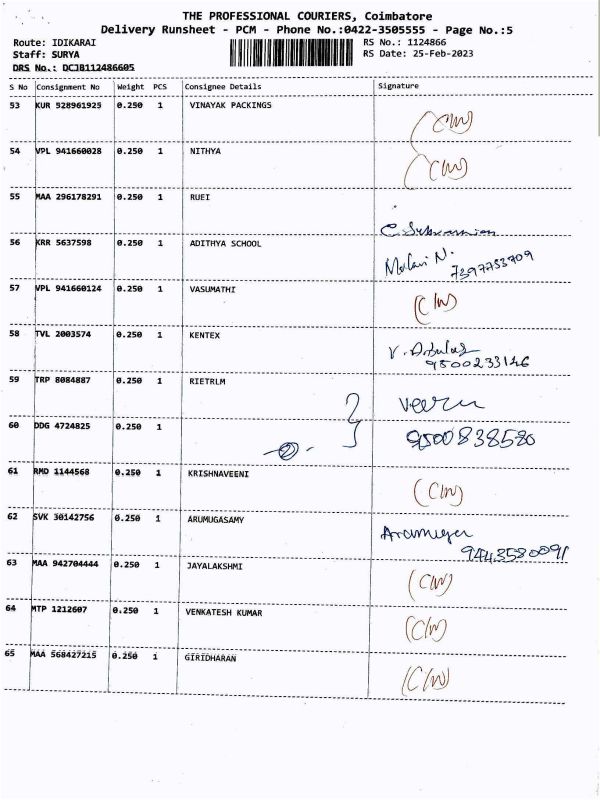 THE PROFESSIONAL COURIERS, Coimbatore
Delivery Runsheet - PCM - Phone No.:0422-3505555 - Page No.:5
Route: IDIKARAI RS No.: 1124866
Staff: SURYA RS Date: 25-Feb-2023
DRS No.: DCJB112486605
S No Consignment No Weight PCS Consignee Details Signature
53 KUR 528961925 0.250 1 VINAYAK PACKINGS
54 VPL 941660028 0.250 1 NITHYA
55 MAA 296178291 0.250 1 RUEI
56 KRR 5637598 0.250 1 ADITHYA SCHOOL
7397753709
57 VPL 941660124 0.250 1 VASUMATHI
58 TVL 2003574 0.250 1 KENTEX
9500233146
59 TRP 8084887 0.250 1 RIETRLM
60 DDG 4724825 0.250 1 9500838580
61 RMD 1144568 0.250 1 KRISHNAVEENI
62 SVK 30142756 0.250 1 ARUMUGASAMY
9443580091
63 MAA 942704444 0.250 1 JAYALAKSHMI
64 MTP 1212607 0.250 1 VENKATESH KUMAR
65 MAA 568427215 0.250 1 GIRIDHARAN